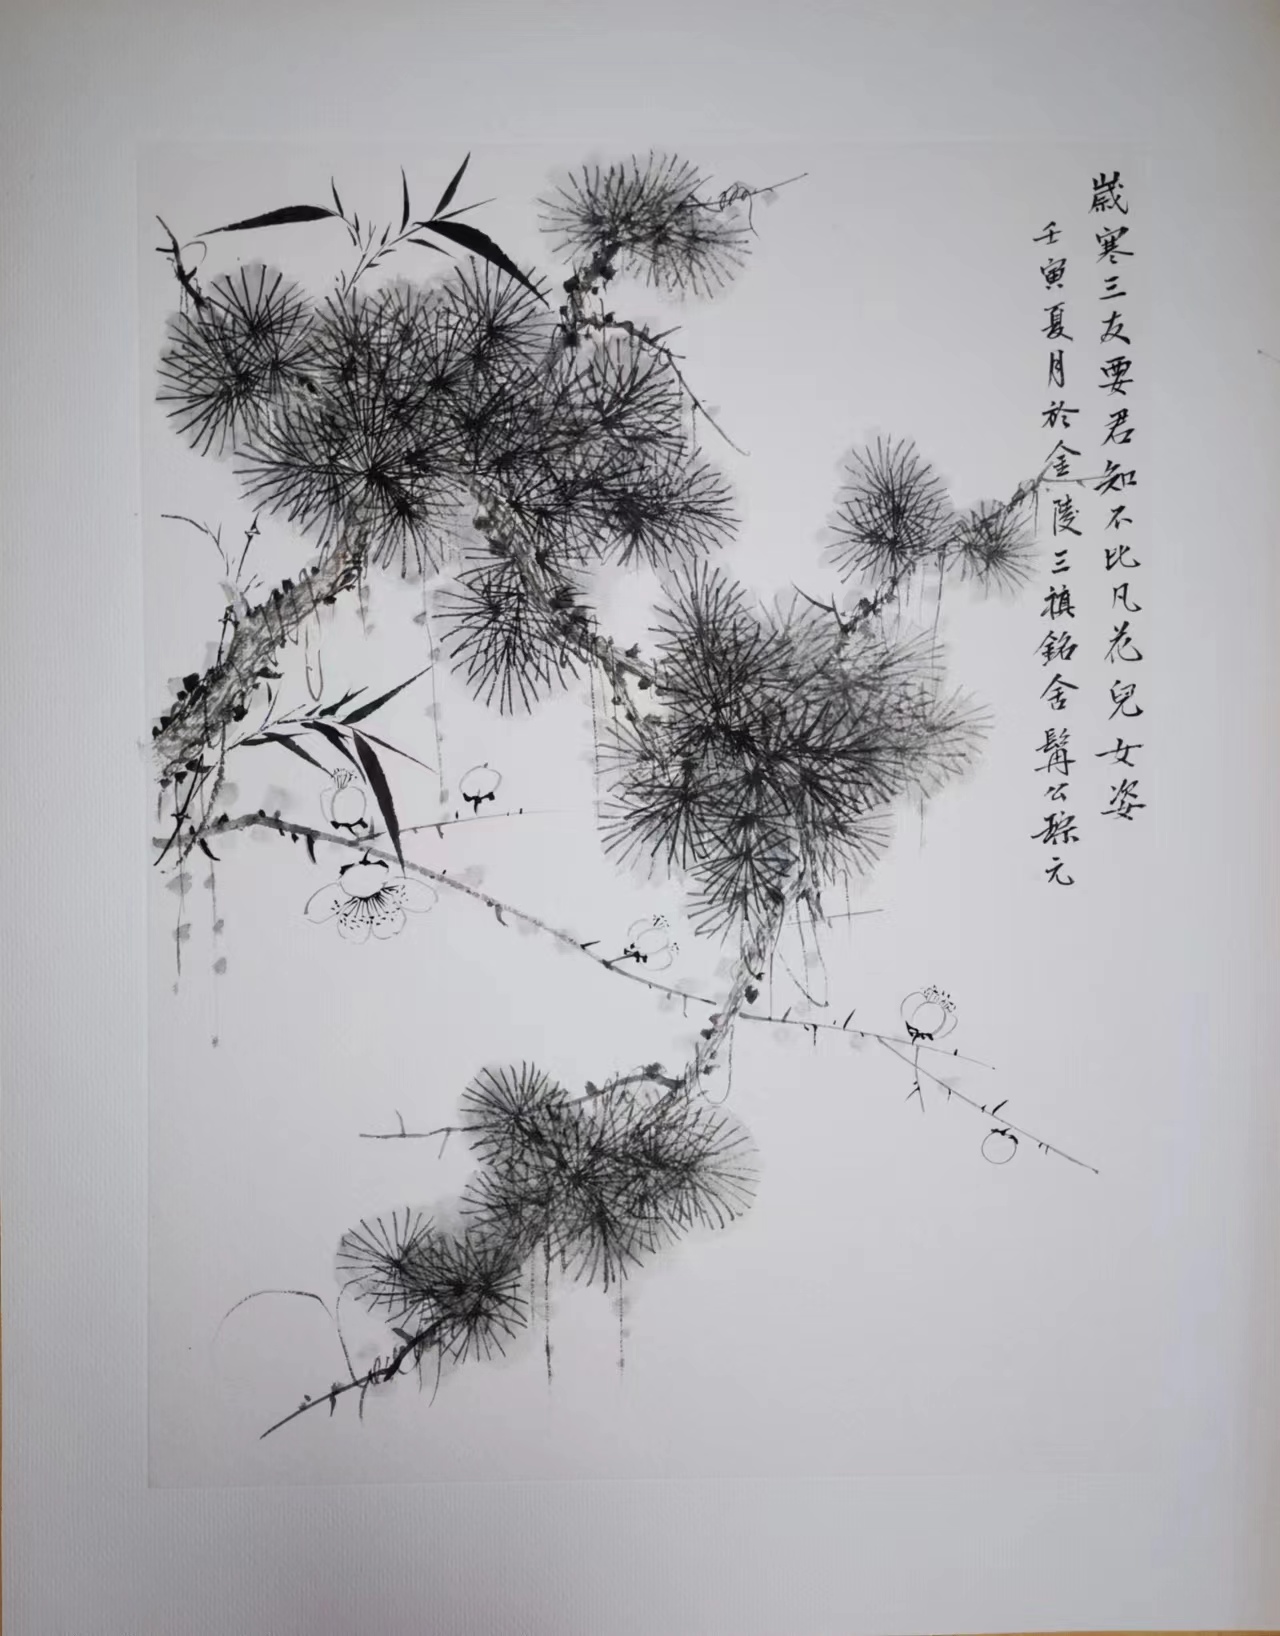 歲寒三友要君知不比凡花兒女姿
壬寅夏月於金陵三禛銘舍髯公琮元